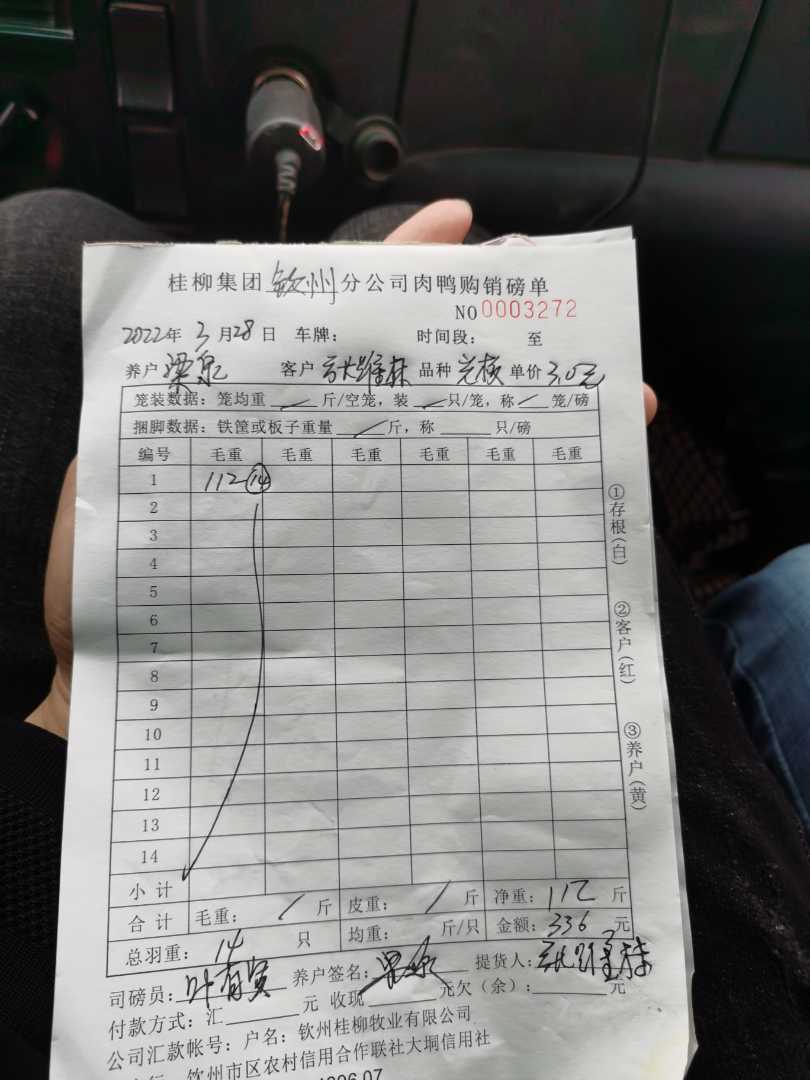 桂柳集团 钦州 分公司肉鸭购销磅单
NO 0003272
2022年 3 月 28 日 车牌: 时间段: 至
养户 梁泉 客户 品种 单价 3.0元
笼装数据: 笼均重 / 斤/空笼, 装 / 只/笼, 称 / 笼/磅
捆脚数据: 铁筐或板子重量 / 斤, 称 只/磅
编号 毛重 毛重 毛重 毛重 毛重 毛重
1 112 14
2
3
4
5
6
7
8
9
10
11
12
13
14
小计
合计 毛重: / 斤 皮重: / 斤 净重: 112 斤
总羽重: 14 只 均重: 斤/只 金额: 336 元
司磅员: 叶有贤 养户签名: 提货人:
付款方式: 汇 元 收现 元欠(余): 元
公司汇款帐号: 户名: 钦州桂柳牧业有限公司
钦州市区农村信用合作联社大垌信用社
①存根(白)
②客户(红)
③养户(黄)